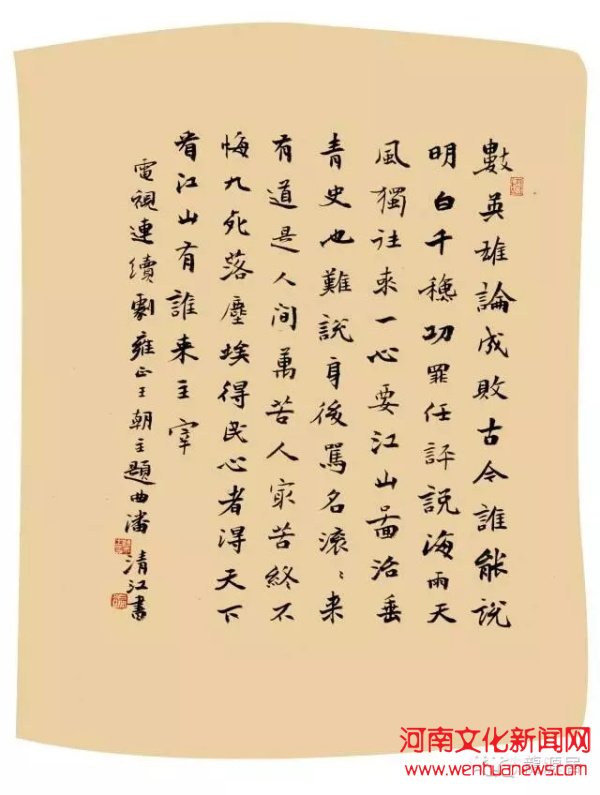 數英雄論成敗古今誰能說
明白千穐功罪任評說海雨天
風獨往來一心要江山圖治垂
青史也難說身後罵名滚〻来
有道是人間萬苦人㝡苦終不
悔九死落塵埃得民心者得天下
看江山有誰来主宰
電視連續劇雍正王朝主題曲潘清江書
河南文化新闻网
www.wenhuanews.com